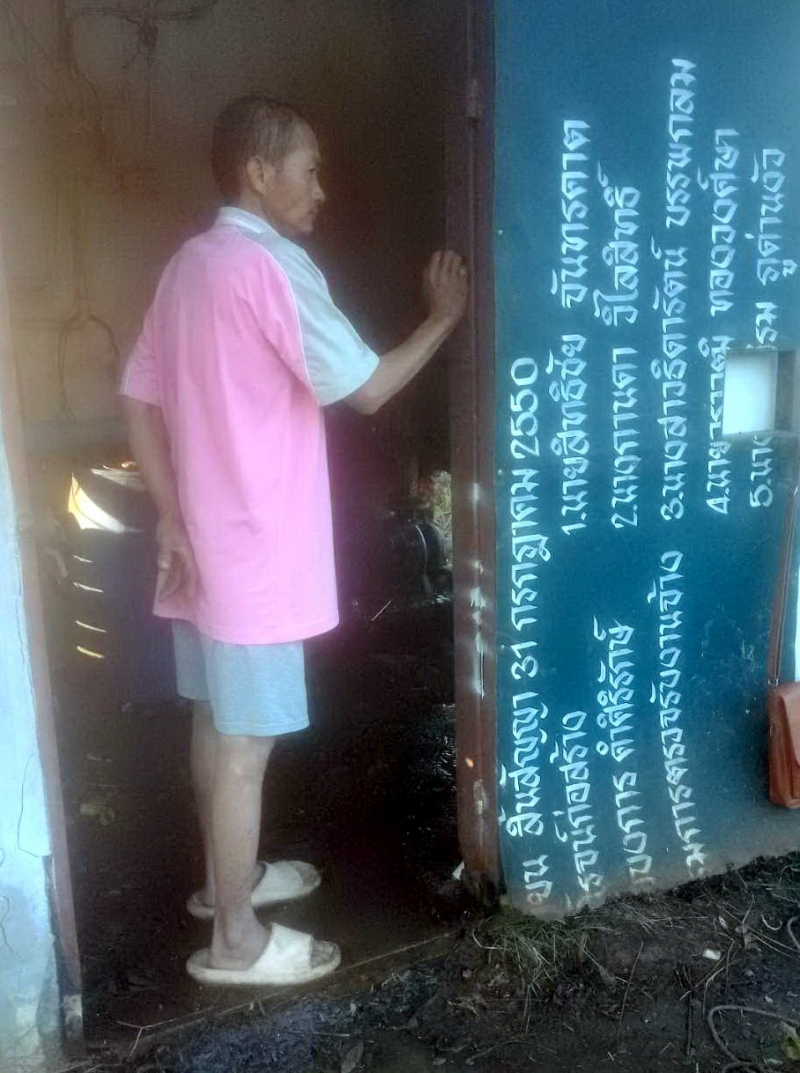 ยน สิ้นสัญญา 31 กรกฎาคม 2550
โรจน์ก่อสร้าง 1.นายสิทธิชัย จันทรคาต
ของการ ดำศิริรักษ์ 2.นางกานดา วิไลสิทธิ์
มการตรวจรับงานจ้าง 3.นางสาวธิดารัตน์ บรรพกลม
4.นาย ทองวงศ์ษา
5.นา รม ภูด่านงัว